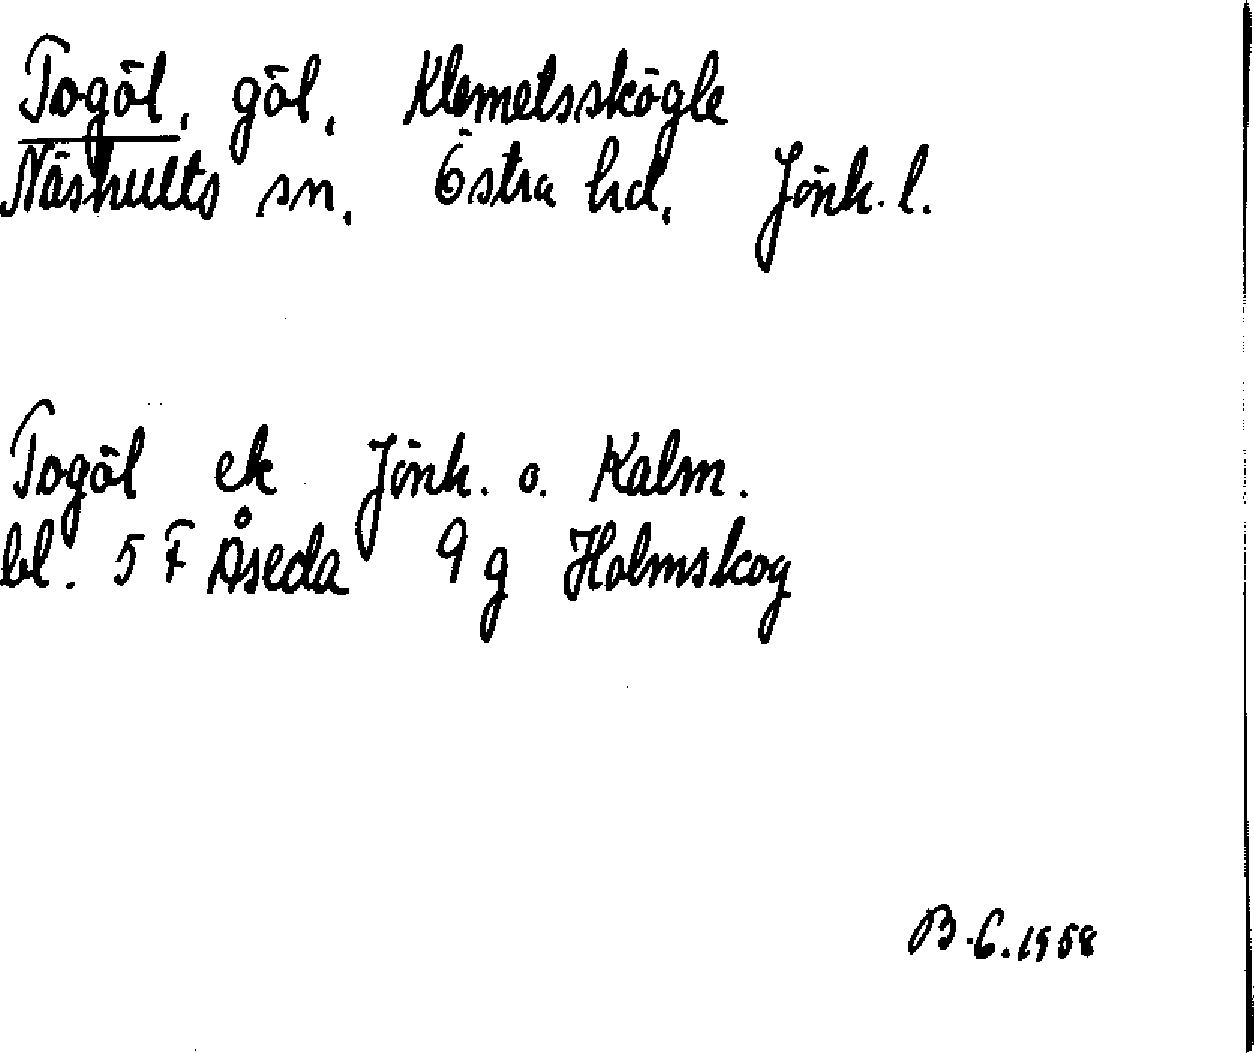 Togöl, göl, Klemetsskögle
Näshults sn, Östra hd, Jönk. l.
Togöl ek Jönk. o. Kalm.
bl. 5 F Åseda 9 g Holmskog
B.C. 1958